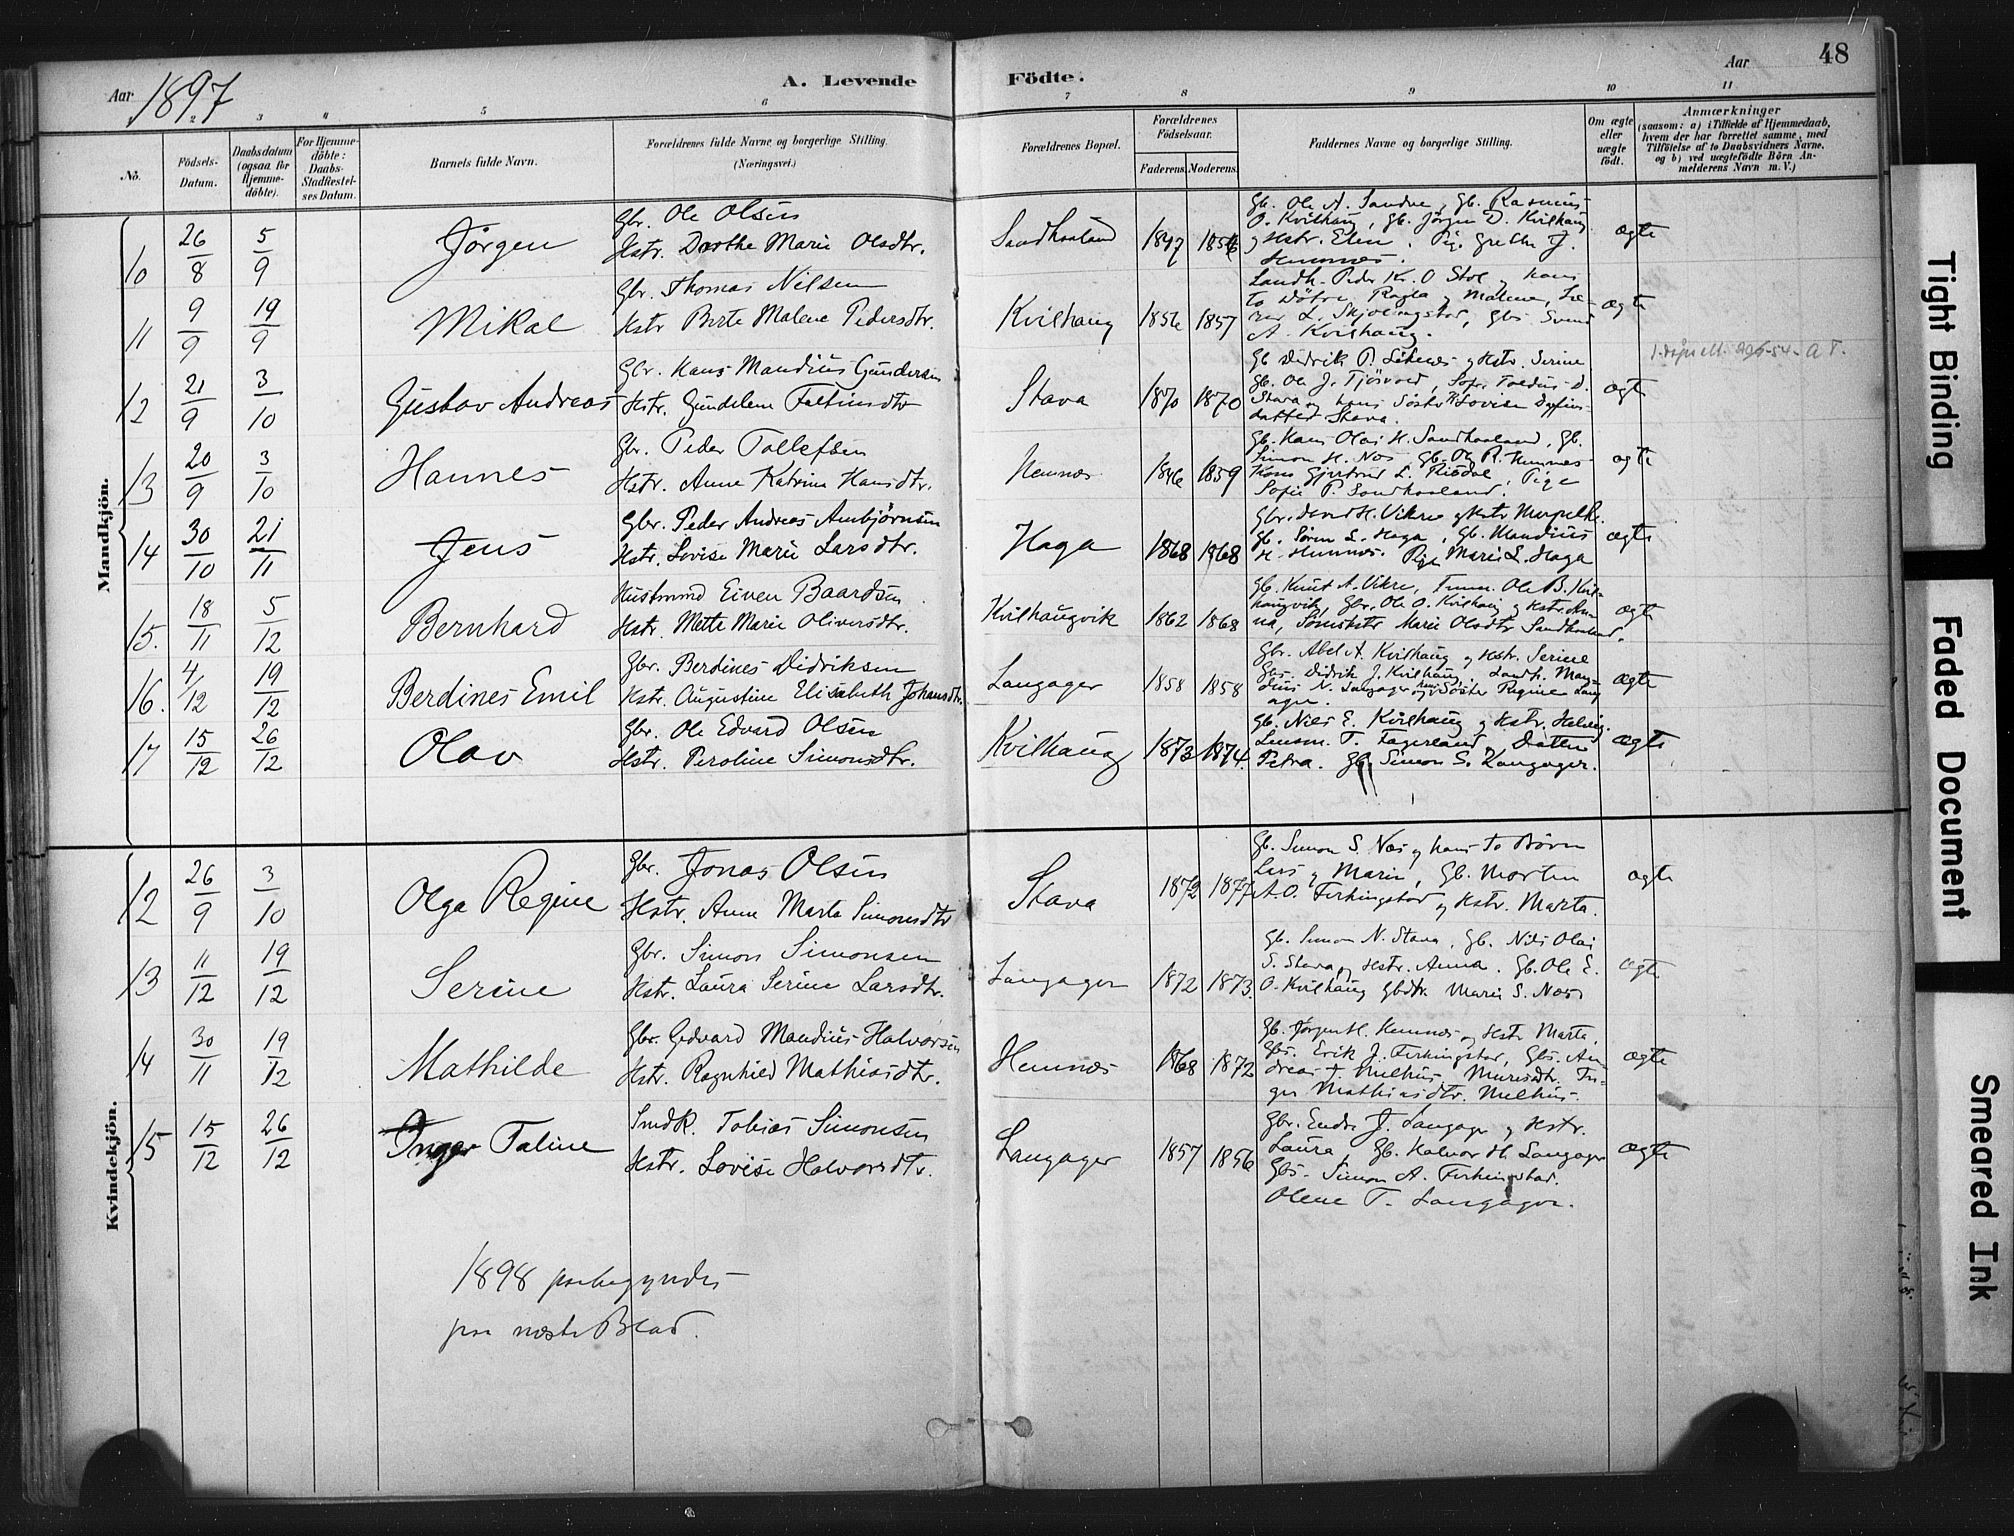 Aar 1897
A. Levende Födte.
Aar
48
1 2 3 4 5 6 7 8 9 10 11
No.
Födsels-Datum.
Daabsdatum (ogsaa for Hjemme-döbte).
For Hjemme-döbte: Daabs-Stadfæstel-ses Datum.
Barnets fulde Navn.
Forældrenes fulde Navne og borgerlige Stilling. (Næringsvei.)
Forældrenes Bopæl.
Forældrenes Födselsaar.
Faderens. Moderens.
Faddernes Navne og borgerlige Stilling.
Om ægte eller uægte födt.
Anmærkninger
(saasom: a) i Tilfælde af Hjemmedaab,
hvem der har forrettet samme, med
Tilföielse af to Daabsvidners Navne,
og b) ved uægtefödte Börn An-
melderens Navn m. V.)
Mandkjön.
10 26/8 5/9 Jørgen
Gbr. Ole Olsen
Hstr. Dorthe Marie Olsdtr.
Sandhaaland 1847 1856
Gb. Ole A. Sandve, Gb. Rasmus
O. Kvilhaug, Gb. Jørgen D. Kvilhaug
og Hstr. Elen. Pige Grethe J.
Hemnes.
ægte
11 9/9 19/9 Mikal
Gbr. Thomas Nilsen
Hstr Berte Malene Pedersdtr.
Kvilhaug 1856 1857
Landh. Peder Kr. O Stol og hans
to Døtre Ragla og Malene,
L. Skjolingstad, Gbs. Svend
A. Kvilhaug.
ægte
12 21/9 3/10 Gustav Andreas
Gbr. Hans Mandius Gundersen
Hstr. Gundelene Faltinsdtr
Stava 1870 1870
Gb Didrik P. Liknes og Hstr. Serine
Gb. Ole J. Tjøsvold,
Stava og hans Søster Lovise
datter Stava.
ægte
13 20/9 3/10 Hannes
Gbr. Peder Tollefsen
Hstr. Anne Katrine Hansdtr.
Hemnes 1846 1859
Gb. Hans Olai H. Sandhaaland, Gb.
Simon H. Nes Gb. Ole R. Hemnes
Kone Gjertrud L. Risdal, Pige
Sofie P. Sandhaaland.
ægte
14 30/10 21/11 Jens
Gbr. Peder Andreas Ambjørnsen
Hstr. Lovise Marie Larsdtr.
Haga 1868 1868
Vikre og Hstr
Gb. Søren L. Haga, Gb. Mandius
H. Hemnes. Pige Marie L. Haga
ægte
15. 18/11 5/12 Bernhard
Husmand Eiven Baardsen
Hstr. Mette Marie Oliversdtr.
Kvilhaugvik 1862 1868
Gb. Knut A. Vikre, Ole B. Kvil-
haugvik, Gbr. Ole O. Kvilhaug og Hstr. An-
na, Marie Olsdtr Sandhaaland.
ægte
16. 4/12 19/12 Berdines Emil
Gbr. Berdines Didriksen
Hstr. Augustine Elisabeth Johansdtr.
Langager 1858 1858
Gbr. Abel A. Kvilhaug og Hstr. Serine
Gbs. Didrik J. Kvilhaug, Landh. Man-
dius N. Langager og hans Søster Regine Lang
ager.
ægte
17 15/12 26/12 Olav
Gbr. Ole Edvard Olsen
Hstr. Peroline Simonsdtr.
Kvilhaug 1873 1874.
Gb. Nils E. Kvilhaug og Hstr. Helvig.
Lensm. T. Fagerland, Datter
Petra. Gb. Simon S. Langager.
ægte
Kvindekjön.
12 26/9 3/10 Olga Regine
Gbr. Jonas Olsen
Hstr. Anne Marta Simonsdtr
Stava 1872 1877
Gb. Simon S. Nes og hans to Børn
Lars og Marie, Gb. Morten
A. O. Ferkingstad og Hstr. Marta.
ægte
13 11/12 19/12 Serine
Gbr. Simon Simonsen
Hstr. Laura Serine Larsdtr.
Langager 1872 1873.
Gb. Simon N. Stava, Gb. Nils Olai
S. Stava og Hstr. Anna. Gb. Ole E.
O. Kvilhaug Gbdtr. Marie S. Nes
ægte
14 30/11 19/12 Mathilde
Gbr. Gedvard Mandius Halvorsen
Hstr. Ragnhild Mathiasdtr.
Hemnes 1868 1872
Gb. Jørgen H. Hemnes og Hstr Marta,
Gbs. Erik J. Ferkingstad, Gbs. An-
dreas J. Melhus, In-
ger Mathiasdtr. Melhus.
ægte
15 15/12 26/12 Inger Taline
Smdk. Tobias Simonsen
Hstr. Lovise Halvorsdtr.
Langager 1857 1856
Gbr. Endre J. Langager og Hstr.
Laura Gb. Halvor H. Langager
Gbs. Simon A. Ferkingstad.
Olene T. Langager.
ægte
1898 paabegyndes
paa næste Blad.
Tight Binding
Faded Document
Smeared Ink